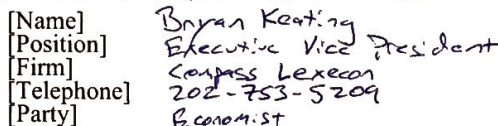 [Name] Bryan Keating
[Position] Executive Vice President
[Firm] Compass Lexecon
[Telephone] 202-753-5209
[Party] Economist